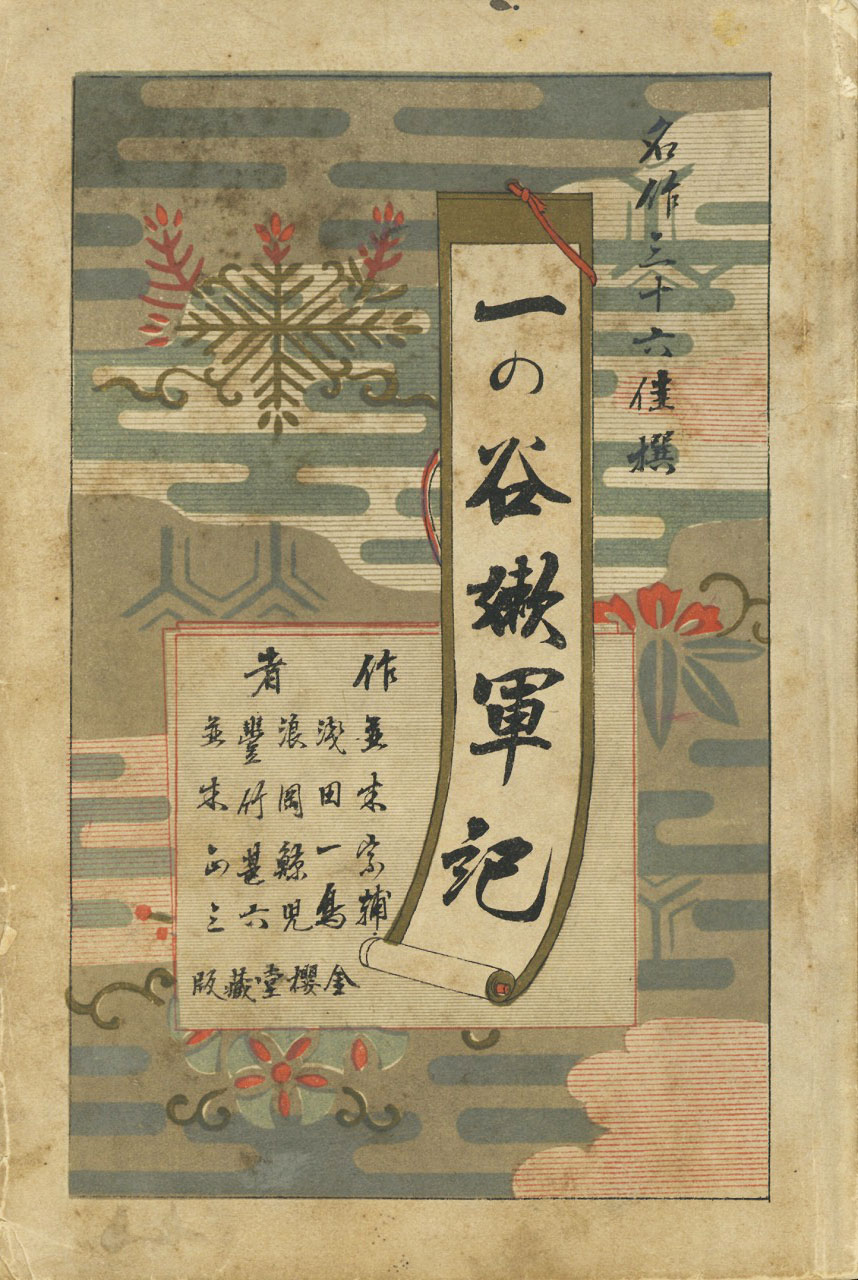 名作三十六佳撰
一の谷嫩軍記
作者
並木宗輔
浅田一鳥
浪岡鯨児
豐竹甚六
並木正三
金櫻堂藏版